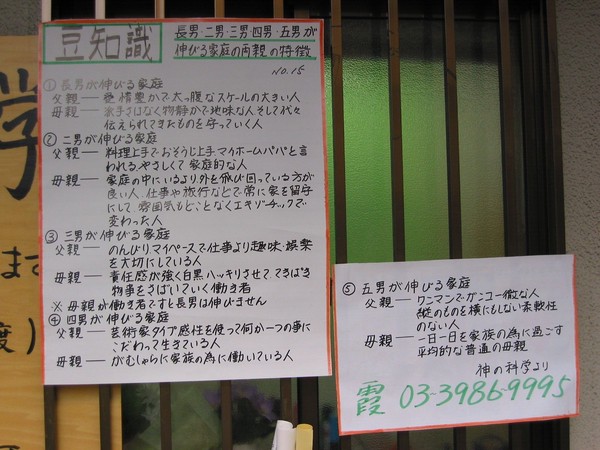 豆知識
長男・二男・三男・四男・五男が
伸びる家庭の両親の特徴
NO.15
① 長男が伸びる家庭
父親 ― 愛情豊かで、太っ腹なスケールの大きい人
母親 ― 派手さはなく物静かで地味な人そして代々
伝えられてきたものを守っていく人
② 二男が伸びる家庭
父親 ― 料理上手でおそうじ上手、マイホームパパと言
われる、やさしくて家庭的な人
母親 ― 家庭の中にいるより外を飛び回っている方が
良い人、仕事や旅行などで常に家を留守
にして、雰囲気もどことなくエキゾチックで
変わった人
③ 三男が伸びる家庭
父親 ― のんびりマイペースで仕事より趣味・娯楽
を大切にしている人
母親 ― 責任感が強く白黒ハッキリさせて、てきぱき
物事をさばいていく働き者
※ 母親が働き者ですと長男は伸びません
④ 四男が伸びる家庭
父親 ― 芸術家タイプ感性を使って何か一つの事に
こだわって生きている人
母親 ― がむしゃらに家族の為に働いている人
⑤ 五男が伸びる家庭
父親 ― ワンマンでガンコ一徹な人
縦のものを横にもしない柔軟性
のない人
母親 ― 一日一日を家族の為に過ごす
平均的な普通の母親
神の科学より
霞 03-3986-9995
学
ます
度)